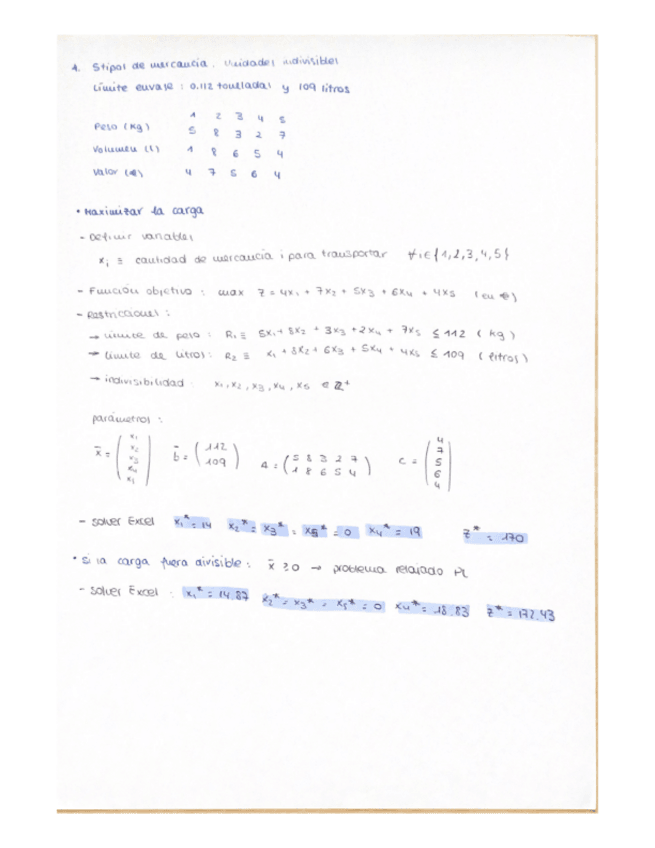 4. 5 tipos de mercancía. Unidades indivisibles
Límite envase : 0.112 toneladas y 109 litros
1 2 3 4 5
Peso (Kg) 5 8 3 2 7
Volumen (l) 1 8 6 5 4
Valor (€) 4 7 5 6 4
• Maximizar la carga
- Definir variables
xi ≡ cantidad de mercancía i para transportar ∀i∈{1,2,3,4,5}
- Función objetivo : max z = 4x1 + 7x2 + 5x3 + 6x4 + 4x5 (en €)
- Restricciones :
→ límite de peso : R1 ≡ 5x1 + 8x2 + 3x3 + 2x4 + 7x5 ≤ 112 (kg)
→ límite de litros : R2 ≡ x1 + 8x2 + 6x3 + 5x4 + 4x5 ≤ 109 (litros)
→ indivisibilidad : x1, x2, x3, x4, x5 ∈ Z+
parámetros :
x̄ = (x1 x2 x3 x4 x5) b̄ = (112 109) A = (5 8 3 2 7 1 8 6 5 4) C = (4 7 5 6 4)
- solver Excel x1* = 14 x2* = x3* = x5* = 0 x4* = 19 z* = 170
• Si la carga fuera divisible : x̄ ≥ 0 → problema relajado PL
- solver Excel : x1* = 14.87 x2* = x3* = x5* = 0 x4* = 18.83 z* = 172.43